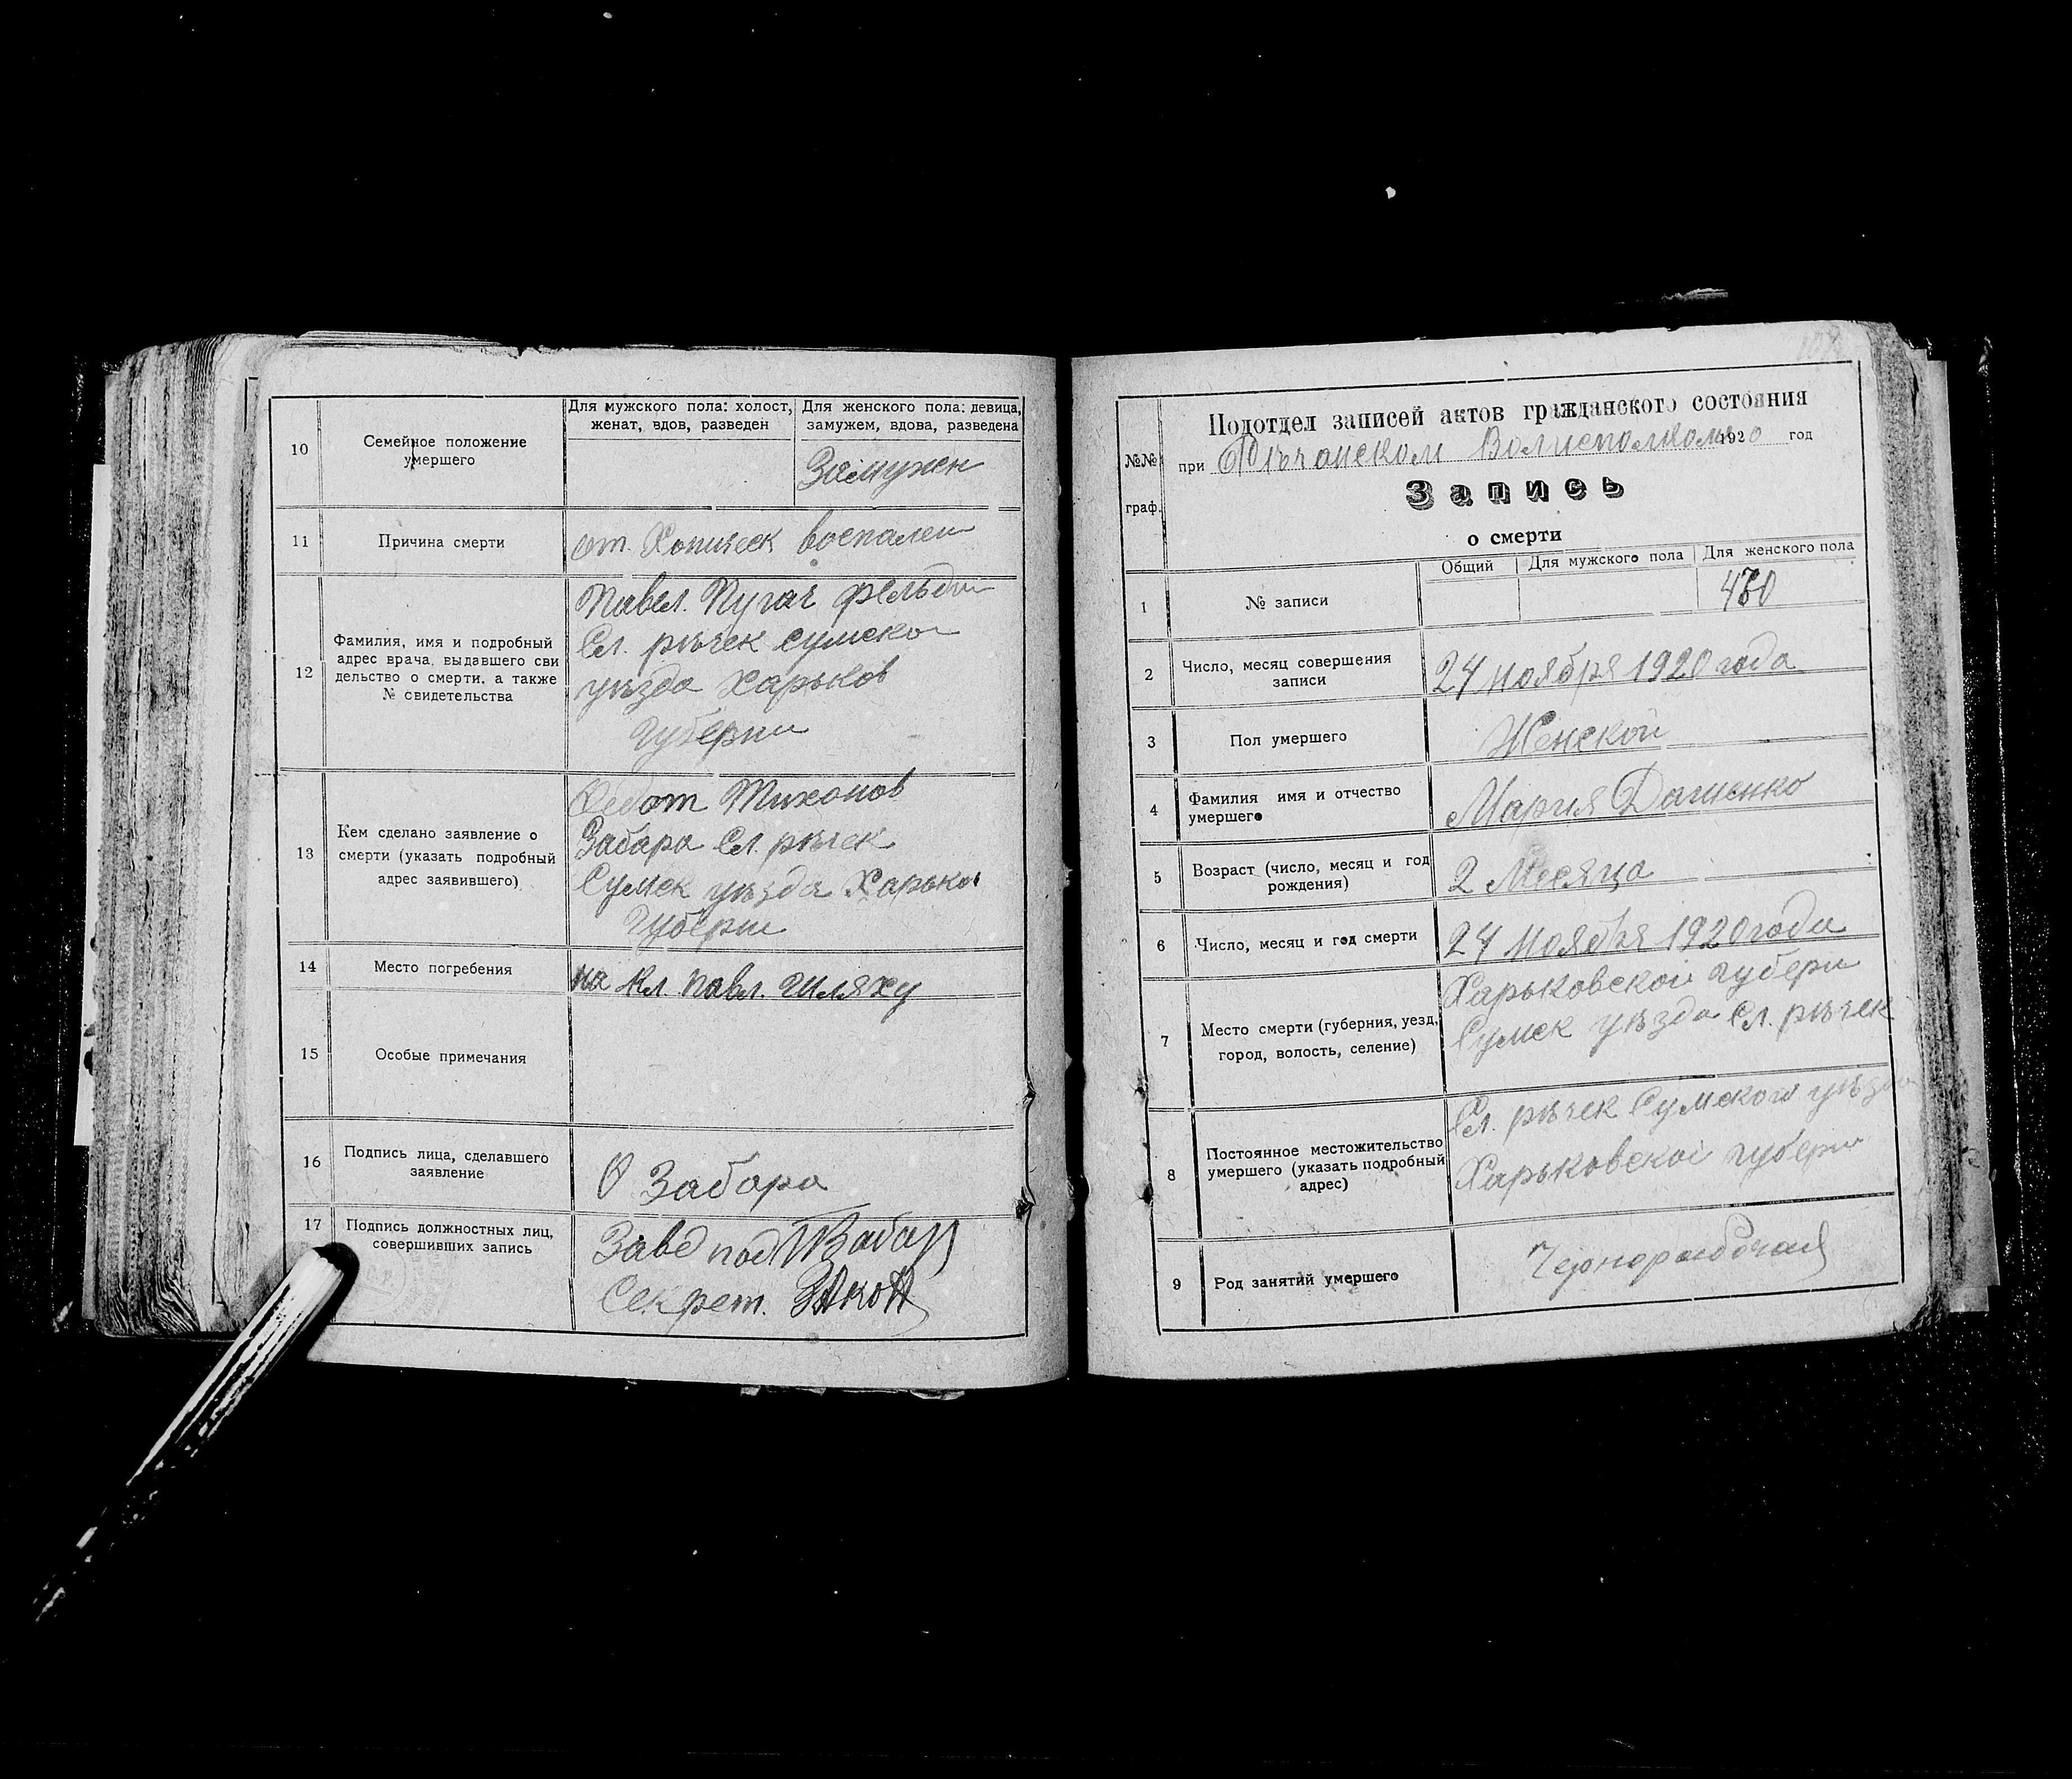 10
Семейное положение
умершего
Для мужского пола: холост,
женат, вдов, разведен
Для женского пола: девица,
замужем, вдова, разведена
Замужен
11
Причина смерти
от. воспален
12
Фамилия, имя и подробный
адрес врача, выдавшего сви
дельство о смерти, а также
№ свидетельства
Павел. Пугач
Сл. рѣчек Сумско
уѣзда Харьков
Губерни
13
Кем сделано заявление о
смерти (указать подробный
адрес заявившего)
Федот Тихонов
Забара Сл. рѣчек
Сумск уѣзда Харьков
Губерни
14
Место погребения
на Кл. Павл. шляху
15
Особые примечания
16
Подпись лица, сделавшего
заявление
Ѳ Забара
17
Подпись должностных лиц,
совершивших запись
Завед под
Секрет.
№№
граф.
Подотдел записей актов гражданского состояния
при Рѣчанском Волисполкоме 1920 год
Запись
о смерти
Общий
Для мужского пола
Для женского пола
1
№ записи
2
Число, месяц совершения
записи
24 ноября 1920 года
3
Пол умершего
Женской
4
Фамилия имя и отчество
умершего
Мария
5
Возраст (число, месяц и год
рождения)
2 Месяца
6
Число, месяц и год смерти
24 ноября 1920 года
7
Место смерти (губерния, уезд,
город, волость, селение)
Харьковской губерн
Сумск уѣзда Сл. рѣчек
8
Постоянное местожительство
умершего (указать подробный
адрес)
Сл. рѣчек Сумской уѣзда
Харьковской губерн
9
Род занятий умершего
Чернорабочая